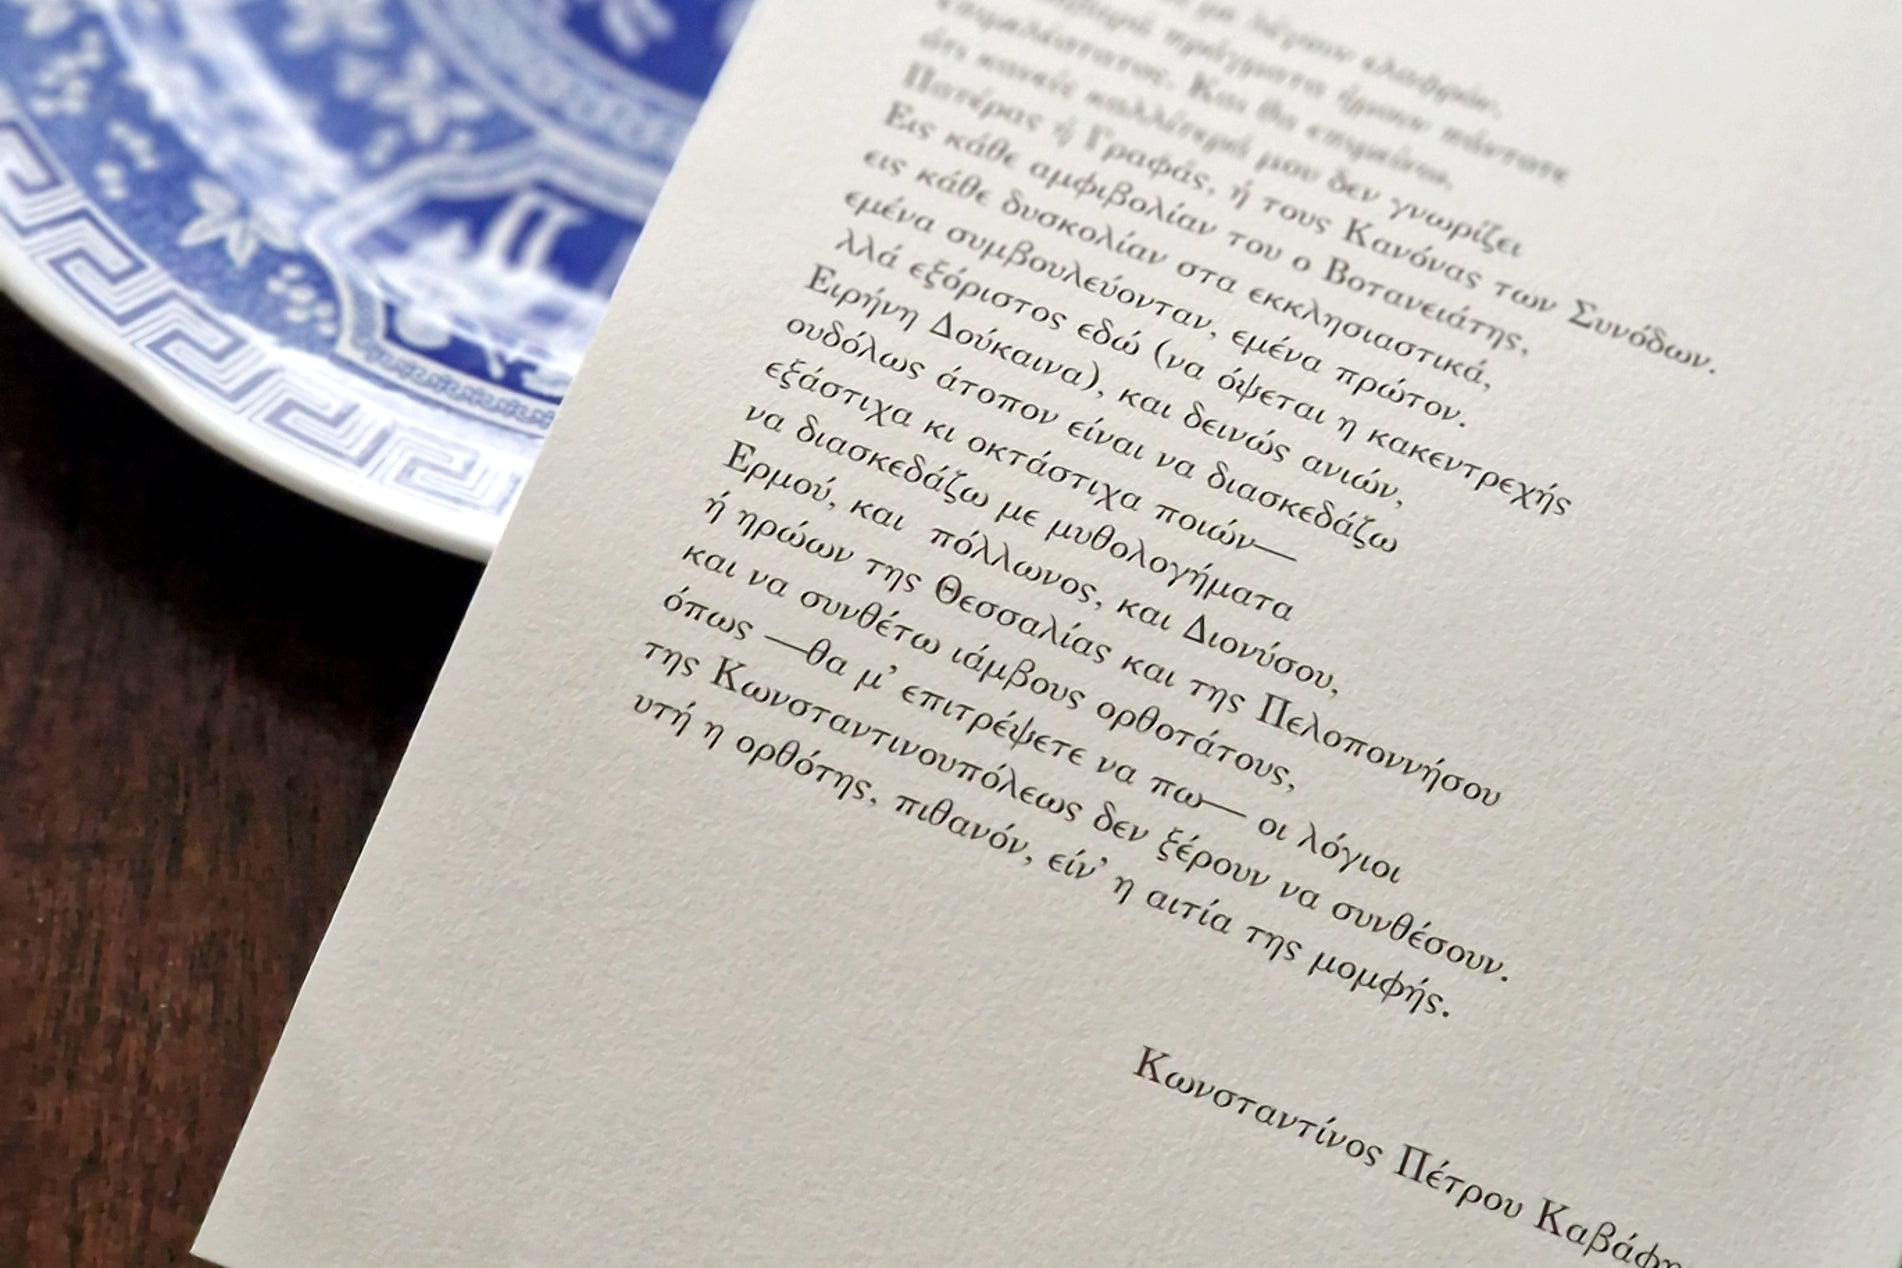 μη λέγουν ελαφρόν.
πράγματα ήμουν πάντοτε
επιμελέστατος. Και θα επιμείνω,
ότι κανείς καλλίτερά μου δεν γνωρίζει
Πατέρας ή Γραφάς, ή τους Κανόνας των Συνόδων.
Εις κάθε αμφιβολίαν του ο Βοτανειάτης,
εις κάθε δυσκολίαν στα εκκλησιαστικά,
εμένα συμβουλεύονταν, εμένα πρώτον.
λλά εξόριστος εδώ (να όψεται η κακεντρεχής
Ειρήνη Δούκαινα), και δεινώς ανιών,
ουδόλως άτοπον είναι να διασκεδάζω
εξάστιχα κι οκτάστιχα ποιών—
να διασκεδάζω με μυθολογήματα
Ερμού, και πόλλωνος, και Διονύσου,
ή ηρώων της Θεσσαλίας και της Πελοποννήσου
και να συνθέτω ιάμβους ορθοτάτους,
όπως —θα μ’ επιτρέψετε να πω— οι λόγιοι
της Κωνσταντινουπόλεως δεν ξέρουν να συνθέσουν.
υτή η ορθότης, πιθανόν, είν’ η αιτία της μομφής.
Κωνσταντίνος Πέτρου Καβάφη